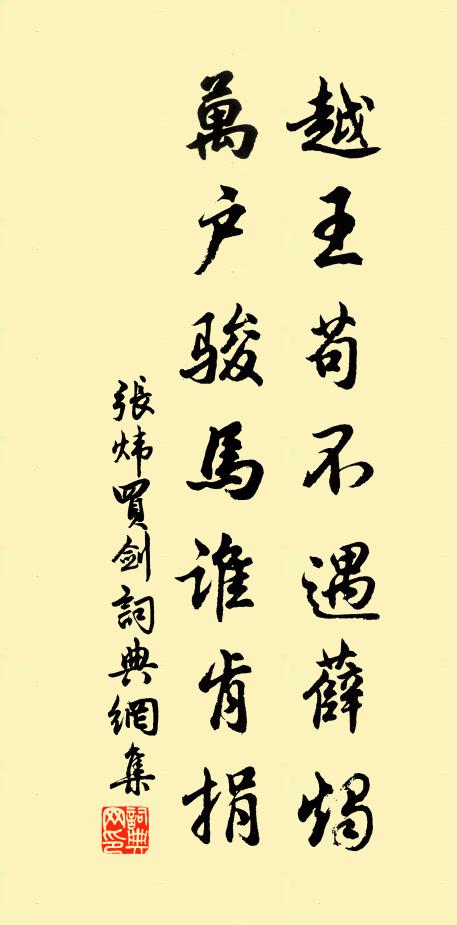 越王苟不遇薛燭
萬户駿馬誰肯捐
張炜買劍詞典網集
詞典网印